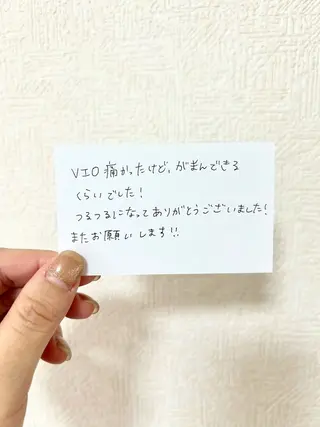 VIO痛かったけど、がまんできる
くらいでした!
つるつるになってありがとうございました!
またお願いします!!